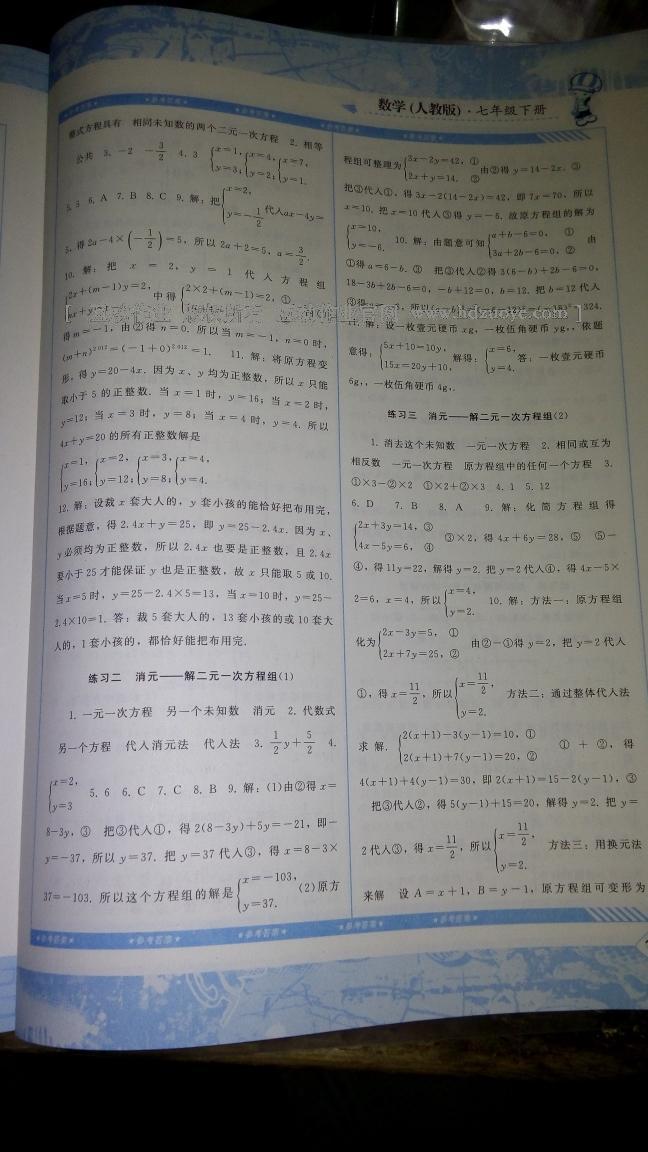 数学(人教版)·七年级下册
★参考答案★ ★参考答案★ ★参考答案★ ★参考答案★ ★参考答案★
整式方程具有 相同未知数的两个二元一次方程 2. 相等
公共 3. -2 -3/2 4. 3 {x=1, y=3; {x=4, y=2; {x=7, y=1.
5. 5 6. A 7. B 8. C 9. 解: 把{x=2, y=-1/2 代入ax-4y=
5, 得 2a-4×(-1/2)=5, 所以 2a+2=5, a=3/2.
10. 解: 把 x = 2, y = 1 代入方程组
{2x+(m-1)y=2, 中得{2×2+(m-1)=2, ①
得 m=-1, 由②得 n=0. 所以当 m=-1, n=0 时,
(m+n)²⁰¹²=(-1+0)²⁰¹²=1. 11. 解: 将原方程变
形, 得 y=20-4x. 因为 x、y 均为正整数, 所以 x 只能
取小于 5 的正整数. 当 x=1 时, y=16; 当 x=2 时,
y=12; 当 x=3 时, y=8; 当 x=4 时, y=4. 所以
4x+y=20 的所有正整数解是
{x=1, y=16; {x=2, y=12; {x=3, y=8; {x=4, y=4.
12. 解: 设裁 x 套大人的, y 套小孩的能恰好把布用完,
根据题意, 得 2.4x+y=25, 即 y=25-2.4x. 因为 x、
y 必须均为正整数, 所以 2.4x 也要是正整数, 且 2.4x
要小于 25 才能保证 y 也是正整数, 故 x 只能取 5 或 10.
当 x=5 时, y=25-2.4×5=13, 当 x=10 时, y=25-
2.4×10=1. 答: 裁 5 套大人的, 13 套小孩的或 10 套大
人的, 1 套小孩的, 都恰好能把布用完.
练习二 消元——解二元一次方程组(1)
1. 一元一次方程 另一个未知数 消元 2. 代数式
另一个方程 代入消元法 代入法 3. 1/2y+5/2 4.
{x=2, y=3 5. 6 6. C 7. C 8. B 9. 解: (1)由②得 x=
8-3y, ③ 把③代入①, 得 2(8-3y)+5y=-21, 即-
y=-37, 所以 y=37. 把 y=37 代入③, 得 x=8-3×
37=-103. 所以这个方程组的解是{x=-103, y=37. (2)原方
程组可整理为{3x-2y=42, ① 2x+y=14. ② 由②得 y=14-2x. ③
把③代入①, 得 3x-2(14-2x)=42, 即 7x=70, 所以
x=10. 把 x=10 代入③得 y=-6. 故原方程组的解为
{x=10, y=-6. 10. 解: 由题意可知{a+b-6=0, ① 3a+2b-6=0, ② 由
①得 a=6-b. ③ 把③代入②得 3(6-b)+2b-6=0,
18-3b+2b-6=0, -b+12=0, b=12. 把 b=12 代入
www.hdzuoye.com
11. 解: 设一枚壹元硬币 xg, 一枚伍角硬币 yg,, 依题
意得: {5x+10=10y, 15x=20y+10, 解得: {x=6, y=4. 答: 一枚壹元硬币
6g,, 一枚伍角硬币 4g,.
练习三 消元——解二元一次方程组(2)
1. 消去这个未知数 一元一次方程 2. 相同或互为
相反数 一元一次方程 原方程组中的任何一个方程 3.
①×3-②×2 ①×2+②×3 4. 1 5. 12
6. D 7. B 8. A 9. 解: 化简方程组得
{2x+3y=14, ③ 4x-5y=6, ④ ③×2, 得 4x+6y=28, ⑤ ⑤-
④, 得 11y=22, 解得 y=2. 把 y=2 代入④, 得 4x-5×
2=6, x=4, 所以{x=4, y=2. 10. 解: 方法一: 原方程组
化为{2x-3y=5, ① 2x+7y=25, ② 由②-①得 y=2, 把 y=2 代入
①, 得 x=11/2, 所以{x=11/2, y=2. 方法二: 通过整体代入法
求解. {2(x+1)-3(y-1)=10, ① 2(x+1)+7(y-1)=20, ② ① + ②, 得
4(x+1)+4(y-1)=30, 即 2(x+1)=15-2(y-1), ③
把③代入②, 得 5(y-1)+15=20, 解得 y=2. 把 y=
2 代入③, 得 x=11/2, 所以{x=11/2, y=2. 方法三: 用换元法
来解 设 A=x+1, B=y-1, 原方程组可变形为
★参考答案★ ★参考答案★ ★参考答案★ ★参考答案★ ★参考答案★